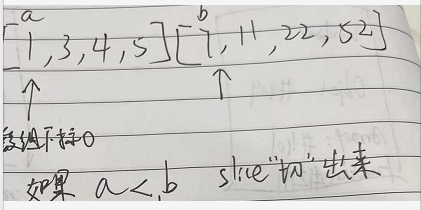 a b
[1,3,4,5] [7,11,22,52]
数组下标0
如果 a<b slice"切"出来